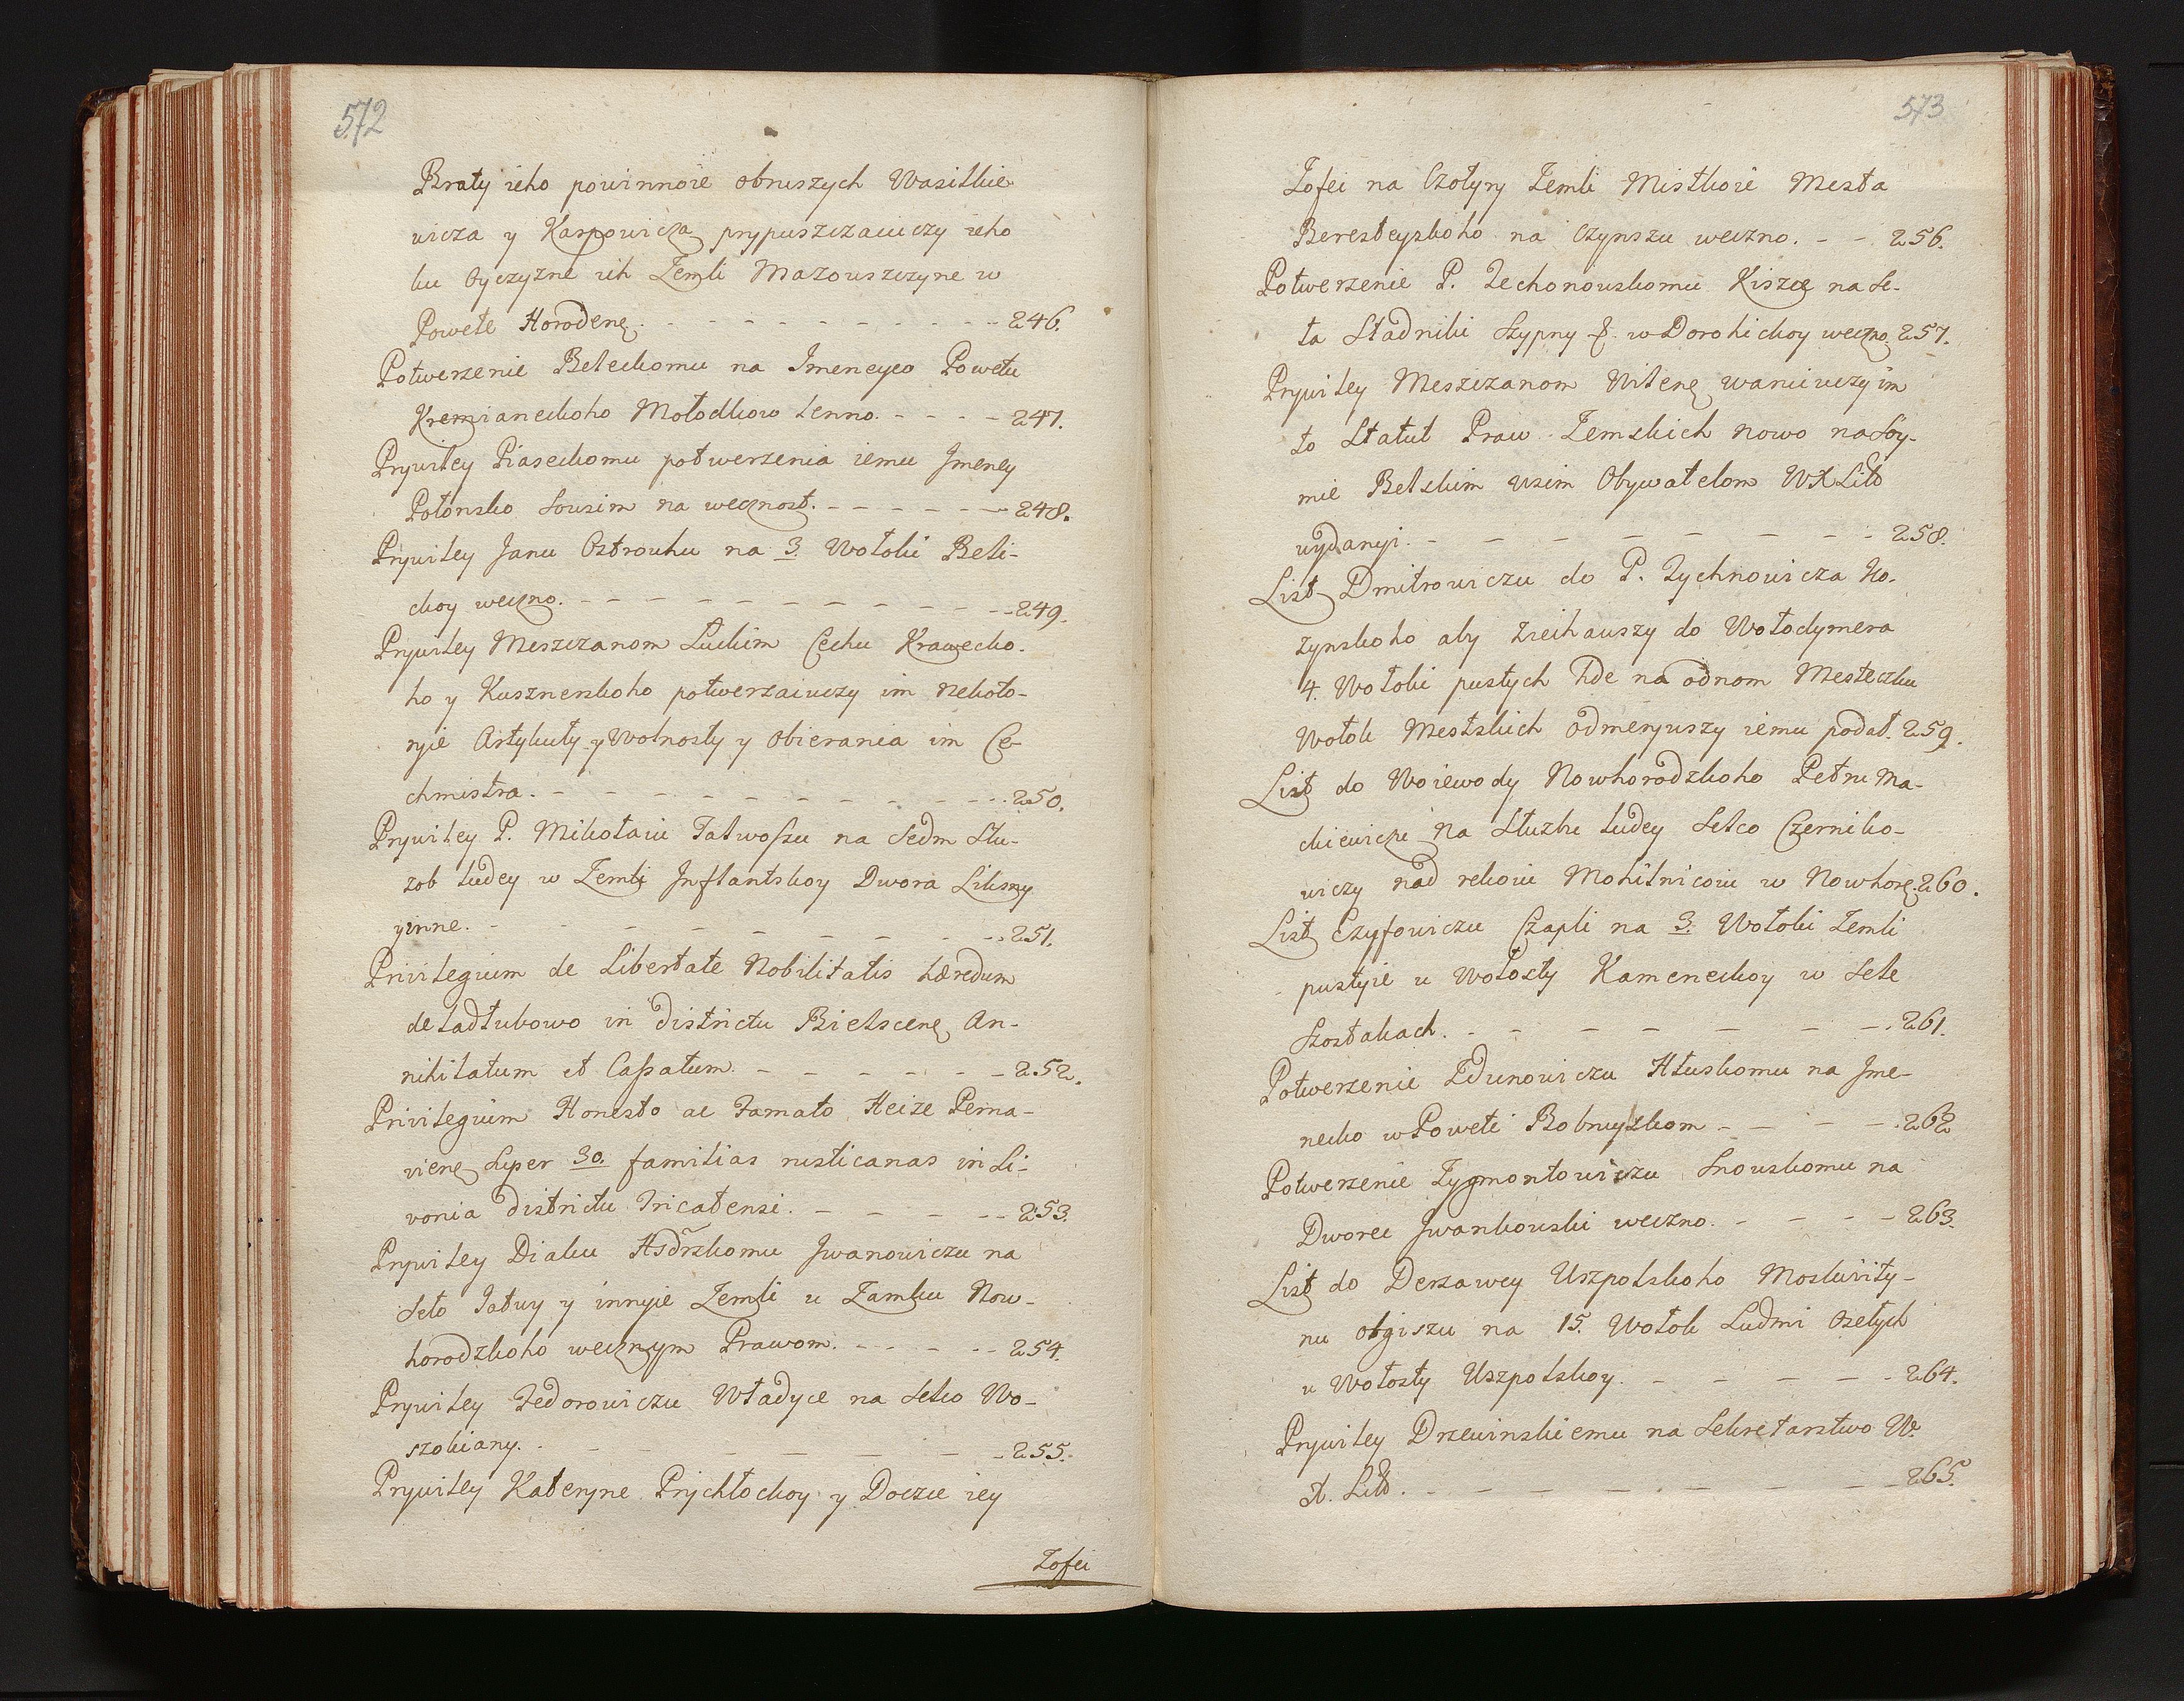 572
Braty ieho powinnoie obruszych Wasilkie
wicza y Karpowicza prypuszczaiuczy ieho
ku Oyczyzne ich Zemli Mazowszczyne w
Powete Horodenę. 246.
Potwerzenie Beleckomu na Imeneyco Powetu
Kremianeckoho Mołodkow lenno. 247.
Prywiley Piaseckomu potwerzenia iemu Imeney
Połonsko Sousim na wecznost. 248.
Prywiley Janu Ostrouhu na 3. Wołoki Beli-
ckoy weczno. 249.
Prywiley Meszczanom Łuckim Cechu Krawecko-
ho y Kusznerskoho potwerzaiuczy im nekoto-
ryie Artykuły y Wolnosty y obierania im Ce-
chmistra. 250.
Prywiley P. Mikołaiu Talwoszu na Sedm Słu-
zob ludey w Zemli Inflantskoy Dwora Liksny
yinne. 251.
Privilegium de Libertate Nobilitatis hæredum
de ladłubowo in districtu Bielscenę An-
nihilatum et Cassatum. 252.
Privilegium Honesto ac Famato Heize Perna-
vienę super 30. familias rusticanas in Li-
vonia districtu Tricatensi. 253.
Prywiley Diaku Hsdrskomu Iwanowiczu na
Seło Jatwy y innyie Zemli u Zamku Now-
horodzkoho wecznym Prawom. 254.
Prywiley Fedorowiczu Władyce na Selco Wo-
szkiany. 255.
Prywiley Kateryne Prychłockoy y Doczce iey
Zofei
573
Zofei na Czotyry Zemli Mistkoie Mesta
Beresteyskoho na Czynszu weczno. 256.
Potwerzenie P. Lechonouskomu Kiszce na Se-
ła Stadniki Szypny &. w Dorohickoy weczno. 257.
Prywiley Meszczanom Wilenę waruiuczy im
to Statut Praw Zemskich nowo na Soy-
mie Belskim wsim Obywatelom WXLitt
wydanyi. 258.
List Dmitrowiczu do P. Tychnowicza Ko-
zynskoho aby zieihauszy do Wołodymera
4. Wołoki pustych hde na odnom Mesteczku
Wołok Mestskich odmeryuszy iemu podał. 259.
List do Woiewody Nowhorodzkoho Petru Ma-
ckiewiczu na Słuzbu ludey Selco Czerniko-
wiczy nad rekoiu Mohilnicoiu w Nowhorę. 260.
List Czyfowiczu Czapli na 3. Wołoki Zemli
pustyie u Wołosty Kameneckoy w Sele
Szostakach. 261.
Potwerzenie Zdunowiczu Hłuskomu na Ime-
necko w Poweti Bobruyskom 262
Potwerzenie Zygmontowiczu Snouskomu na
Dworec Iwankouski weczno. 263.
List do Derzawcy Uszpolskoho Moskwity-
nu obgiszu na 15. Wołok Ludmi oselych
u Wołosty Uszpolskoy. 264.
Prywiley Drzewinskiemu na Sekretarstwo W.
X. Litt. 265.